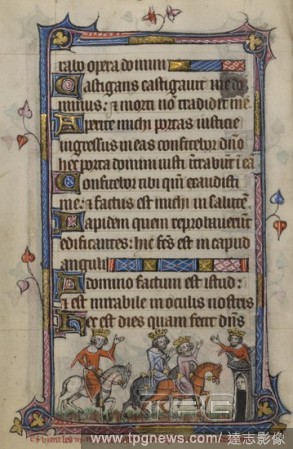 rabo opera domini
Castigans castigavit me do
minus: & morti nō tradidit me.
Aperite michi portas iusticie
ingressus in eas confitebor dn̄o
hec porta domini iusti ītrabūt ī eā
Confitebor tibi qm̄ exaudisti
me: & factus est michi in salutē.
Lapidem quem reprobaverūt
edificantes: hic fc̄s est in caput
anguli
A domino factum est istud:
& est mirabile in oculis nostris
Hec est dies quam fecit dn̄s
TPG
www.tpgnews.com/ 達志影像